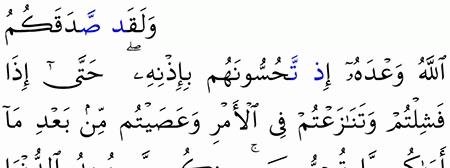 وَلَقَد صَّدَقَكُمُ
ٱللَّهُ وَعْدَهُۥٓ إِذ تَّحُسُّونَهُم بِإِذْنِهِۦۖ حَتَّىٰٓ إِذَا
فَشِلْتُمْ وَتَنَٰزَعْتُمْ فِى ٱلْأَمْرِ وَعَصَيْتُم مِّنۢ بَعْدِ مَآ